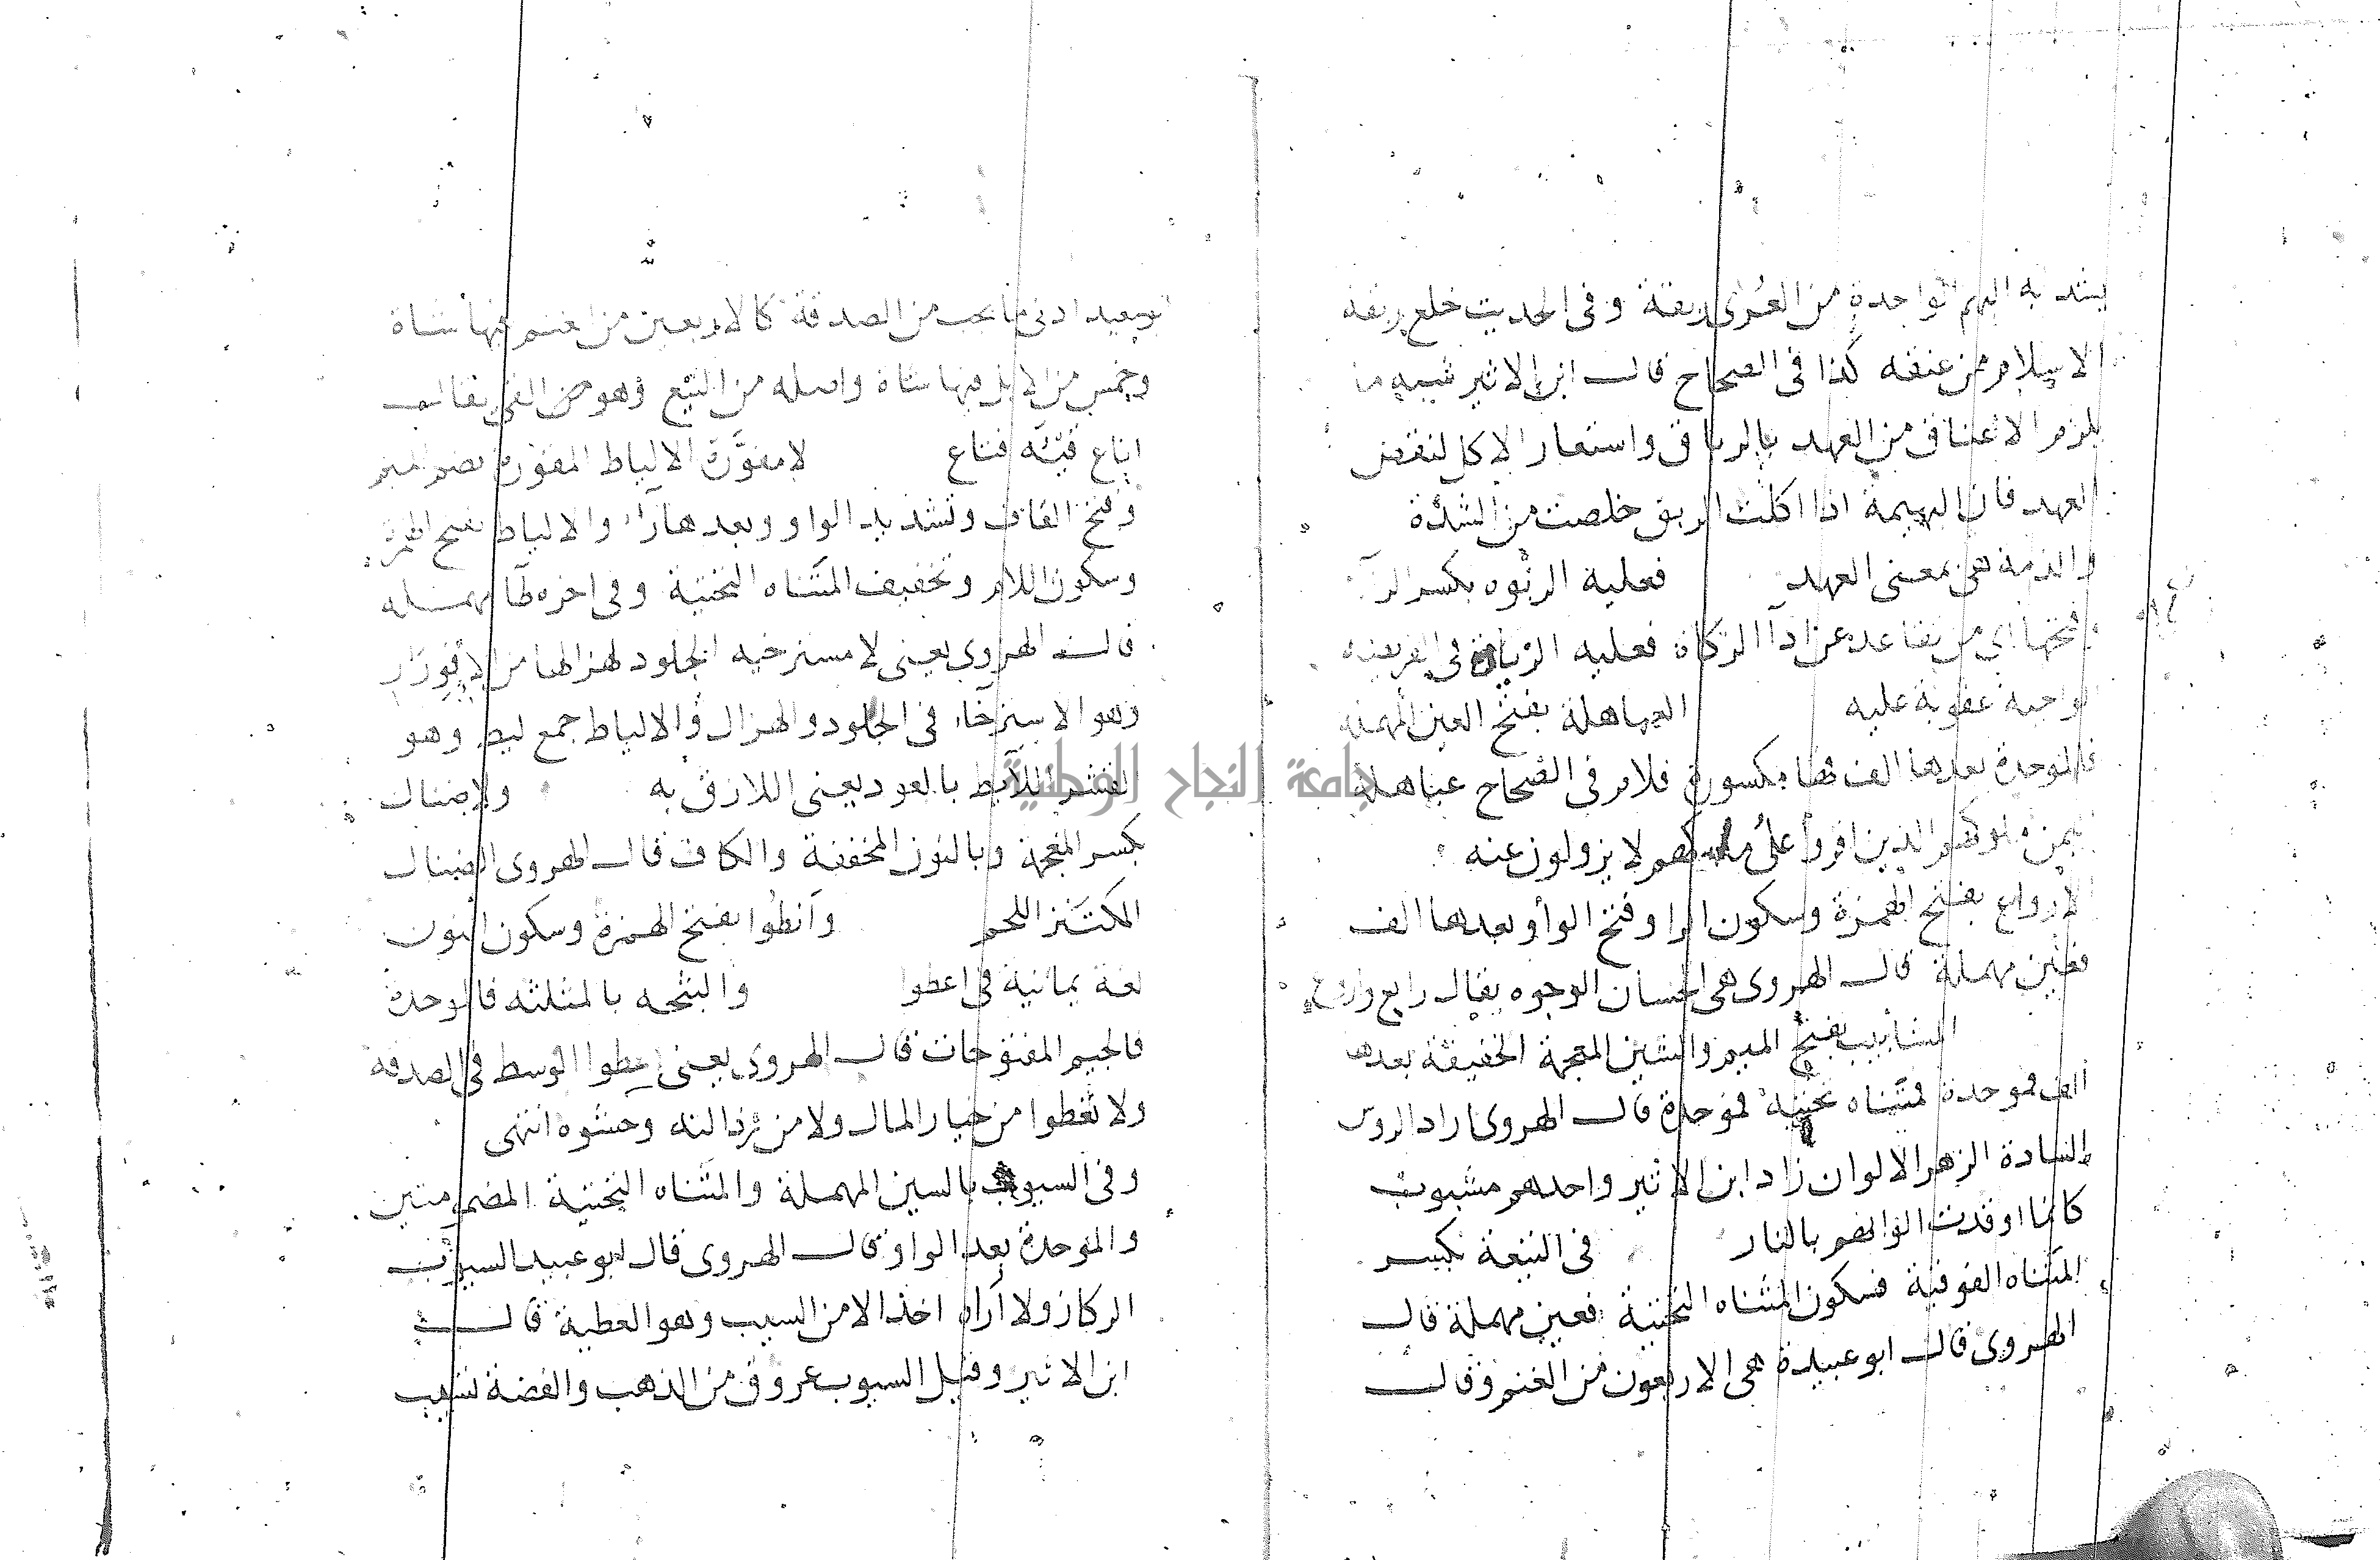 يشد به البهم الواحدة من العرى ربقة وفى الحديث خلع ربقة
الاسلام من عنقه كذا فى الصحاح قال ابن الاثير شبه ما
يلزم الاعناق من العهد بالرباق واستعار الاكل لنقض
العهد فان البهيمة اذا اكلت الربق خلصت من الشدة
والذمة هى بمعنى العهد فعليه الربوه بكسر الرآ
وفتحها اى من تقاعد عن ادآ الزكاة فعليه الزيادة فى الفريضة
الواجبة عقوبة عليه العباهلة بفتح العين المهملة
فالموحدة بعدها الف فها مكسورة فلام فى الصحاح عباهلة
اليمن ملوكهم الذين اقروا على ملكهم لا يزولون عنه
الارواع بفتح الهمزة وسكون الرا وفتح الواو بعدها الف
فعين مهملة قال الهروى هى الحسان الوجوه يقال رايع واروع
المشابيب بفتح الميم والشين المعجمة الخفيفة بعدها
الف فموحدة فمثناه تحتية فموحدة قال الهروى اراد الروس
السادة الزهر الالوان زاد ابن الاثير واحدهم مشبوب
كانما اوقدت الوانهم بالنار فى التيعة بكسر
المثناه الفوقية فسكون المثناه التحتية فعين مهملة قال
الهروى قال ابو عبيدة هى الاربعون من الغنم وقال
ابو سعيد ادنى ما يجب من الصدقة كالاربعين من الغنم فيها شاة
وخمس من الابل فيها شاة واصله من التيع وهو من القى يقال
اتاع قيئه فتاع لا مقورة الالياط المقورة بضم الميم
وفتح القاف وتشديد الواو وبعدها رآ والالياط بفتح الهمزة
وسكون اللام وتخفيف المثناه التحتية وفى اخره طآ مهملـه
قال الهروى يعنى لا مسترخيه الجلود لهزالها من الاقورار
وهو الاسترخآء فى الجلود والهزال والالياط جمع ليط وهو
القشر اللآيط بالعود يعنى اللازق به ولا ضناك
بكسر المعجمة وبالنون المخففة والكاف قال الهروى الضناك
المكتنز اللحم وأنطوا بفتح الهمزة وسكون النون
لغة يمانية فى اعطوا والثبجه بالمثلثه فالموحدة
فالجيم المفتوحات قال الهروى يعنى اعطوا الوسط فى الصدقه
ولا تعطوا من خيار المال ولا من رذالته وحشوه انتهى
وفى السيوب بالسين المهملة والمثناه التحتية المضمومتين
والموحدة بعد الواو قال الهروى قال ابو عبيد السيوب
الركاز ولا آراه اخذ الا من السيب وهو العطية قال
ابن الاثير وقيل السيوب عروق من الذهب والفضة تسيب
جامعة النجاح الوطنية